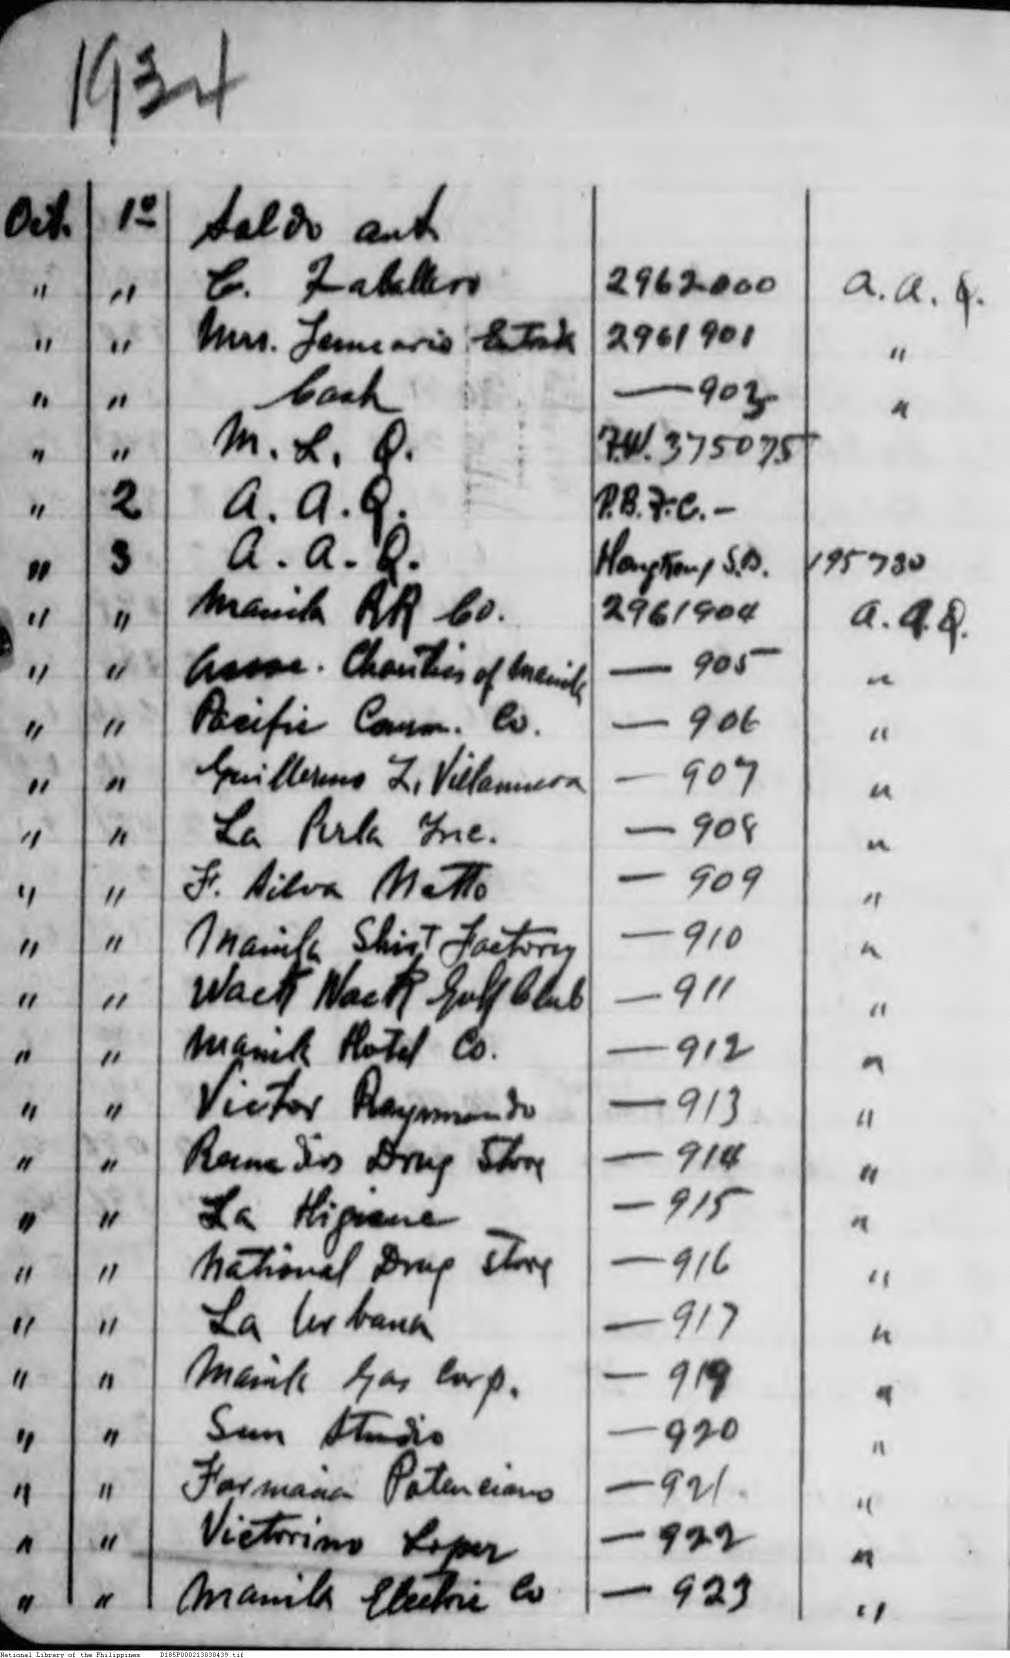 1934
Oct. 1º Saldo ant.
" " C. Zaballero 2962000 A. A. Q.
" " Mrs. Januario 2961901 "
" " Cash — 903 "
" " M. L. Q. F.W. 375075
" 2 A. A. Q. P.B.F.C. —
" 3 A. A. Q. Hongkong S.B. 195730
" " Manila RR Co. 2961904 A. A. Q.
" " Assoc. Charities of Manila — 905 "
" " Pacific Comm. Co. — 906 "
" " Guillermo Z. Villanueva — 907 "
" " La Perla Inc. — 908 "
" " F. Silva Netto — 909 "
" " Manila Shirt Factory — 910 "
" " Wack Wack Golf Club — 911 "
" " Manila Hotel Co. — 912 "
" " Victor Raymundo — 913 "
" " Remedios Drug Store — 914 "
" " La Higiene — 915 "
" " National Drug Store — 916 "
" " La Urbana — 917 "
" " Manila Gas Corp. — 919 "
" " Sun Studio — 920 "
" " Farmacia Potenciano — 921. "
" " Victorino Lopez — 922 "
" " Manila Electric Co — 923 "
National Library of the Philippines D185P000213838439.tif